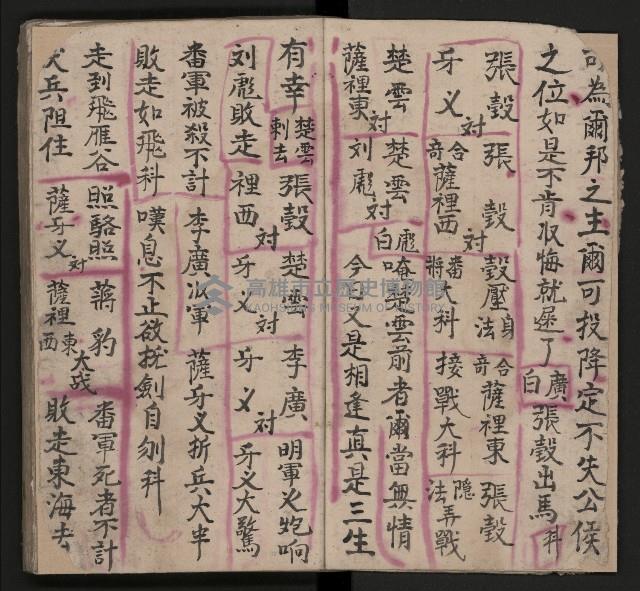 可為爾邦之主爾可投降定不失公侯
之位如是不肯收悔就遲了廣白張穀出馬科
張穀對張穀對穀壓身法合奇薩裡東張穀
牙义對合奇薩裡西對番將大科接戰大科隱法弄戰
楚雲對楚雲對彪白唵楚雲前者爾當無情
薩裡東對刘彪對今日又是相逢真是三生
有幸楚雲刺去張穀對楚雲對李廣對明軍火炮响
刘彪敗走裡西對牙义對牙义對牙义大驚
番軍被殺不計李廣收軍薩牙义折兵大半
敗走如飛科嘆息不止欲抗劍自刎科
走到飛雁谷照駱照對蔣豹大战番軍死者不計
伏兵阻住薩牙义對薩裡東西大战敗走東海去
高雄市立歷史博物館
KAOHSIUNG MUSEUM OF HISTORY